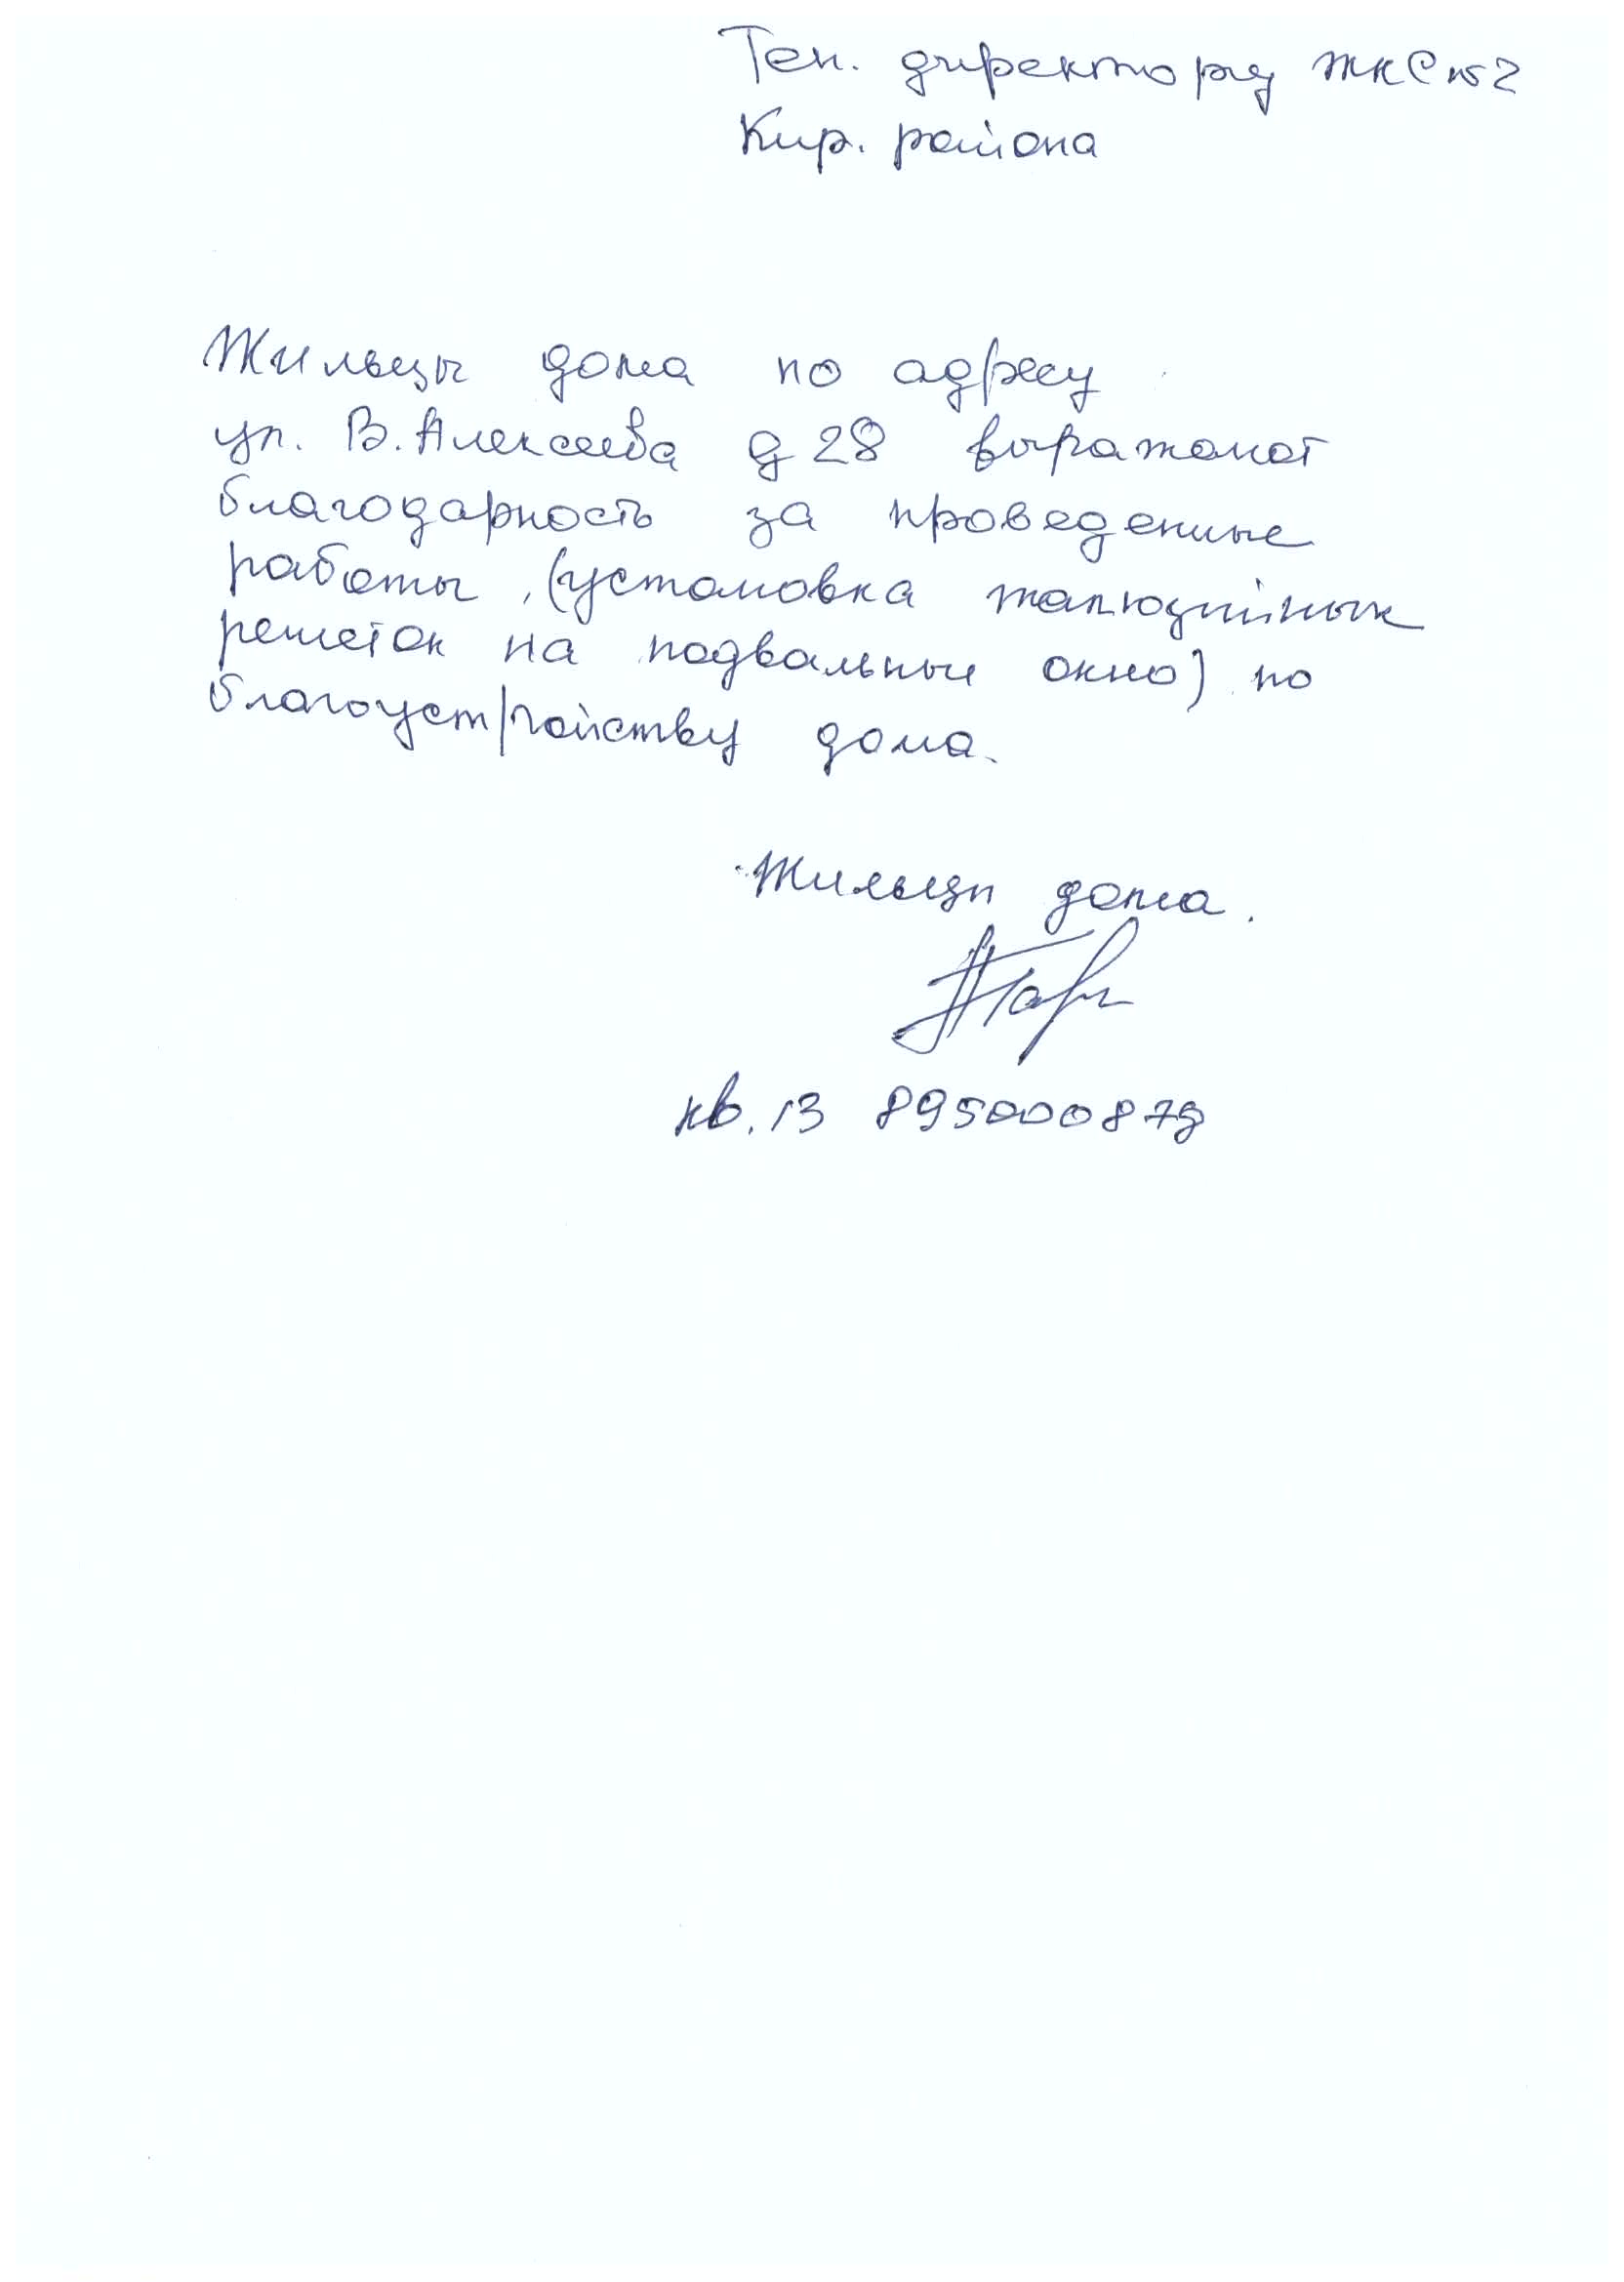 Ген. директору ЖКС №2
Кир. района
Жильцы дома по адресу
ул. В. Алексеева д 28 выражают
благодарность за проведенные
работы, (установка жалюзийных
решеток на подвальные окно) по
благоустройству дома.
Жильцы дома.
кв. 13 895000879